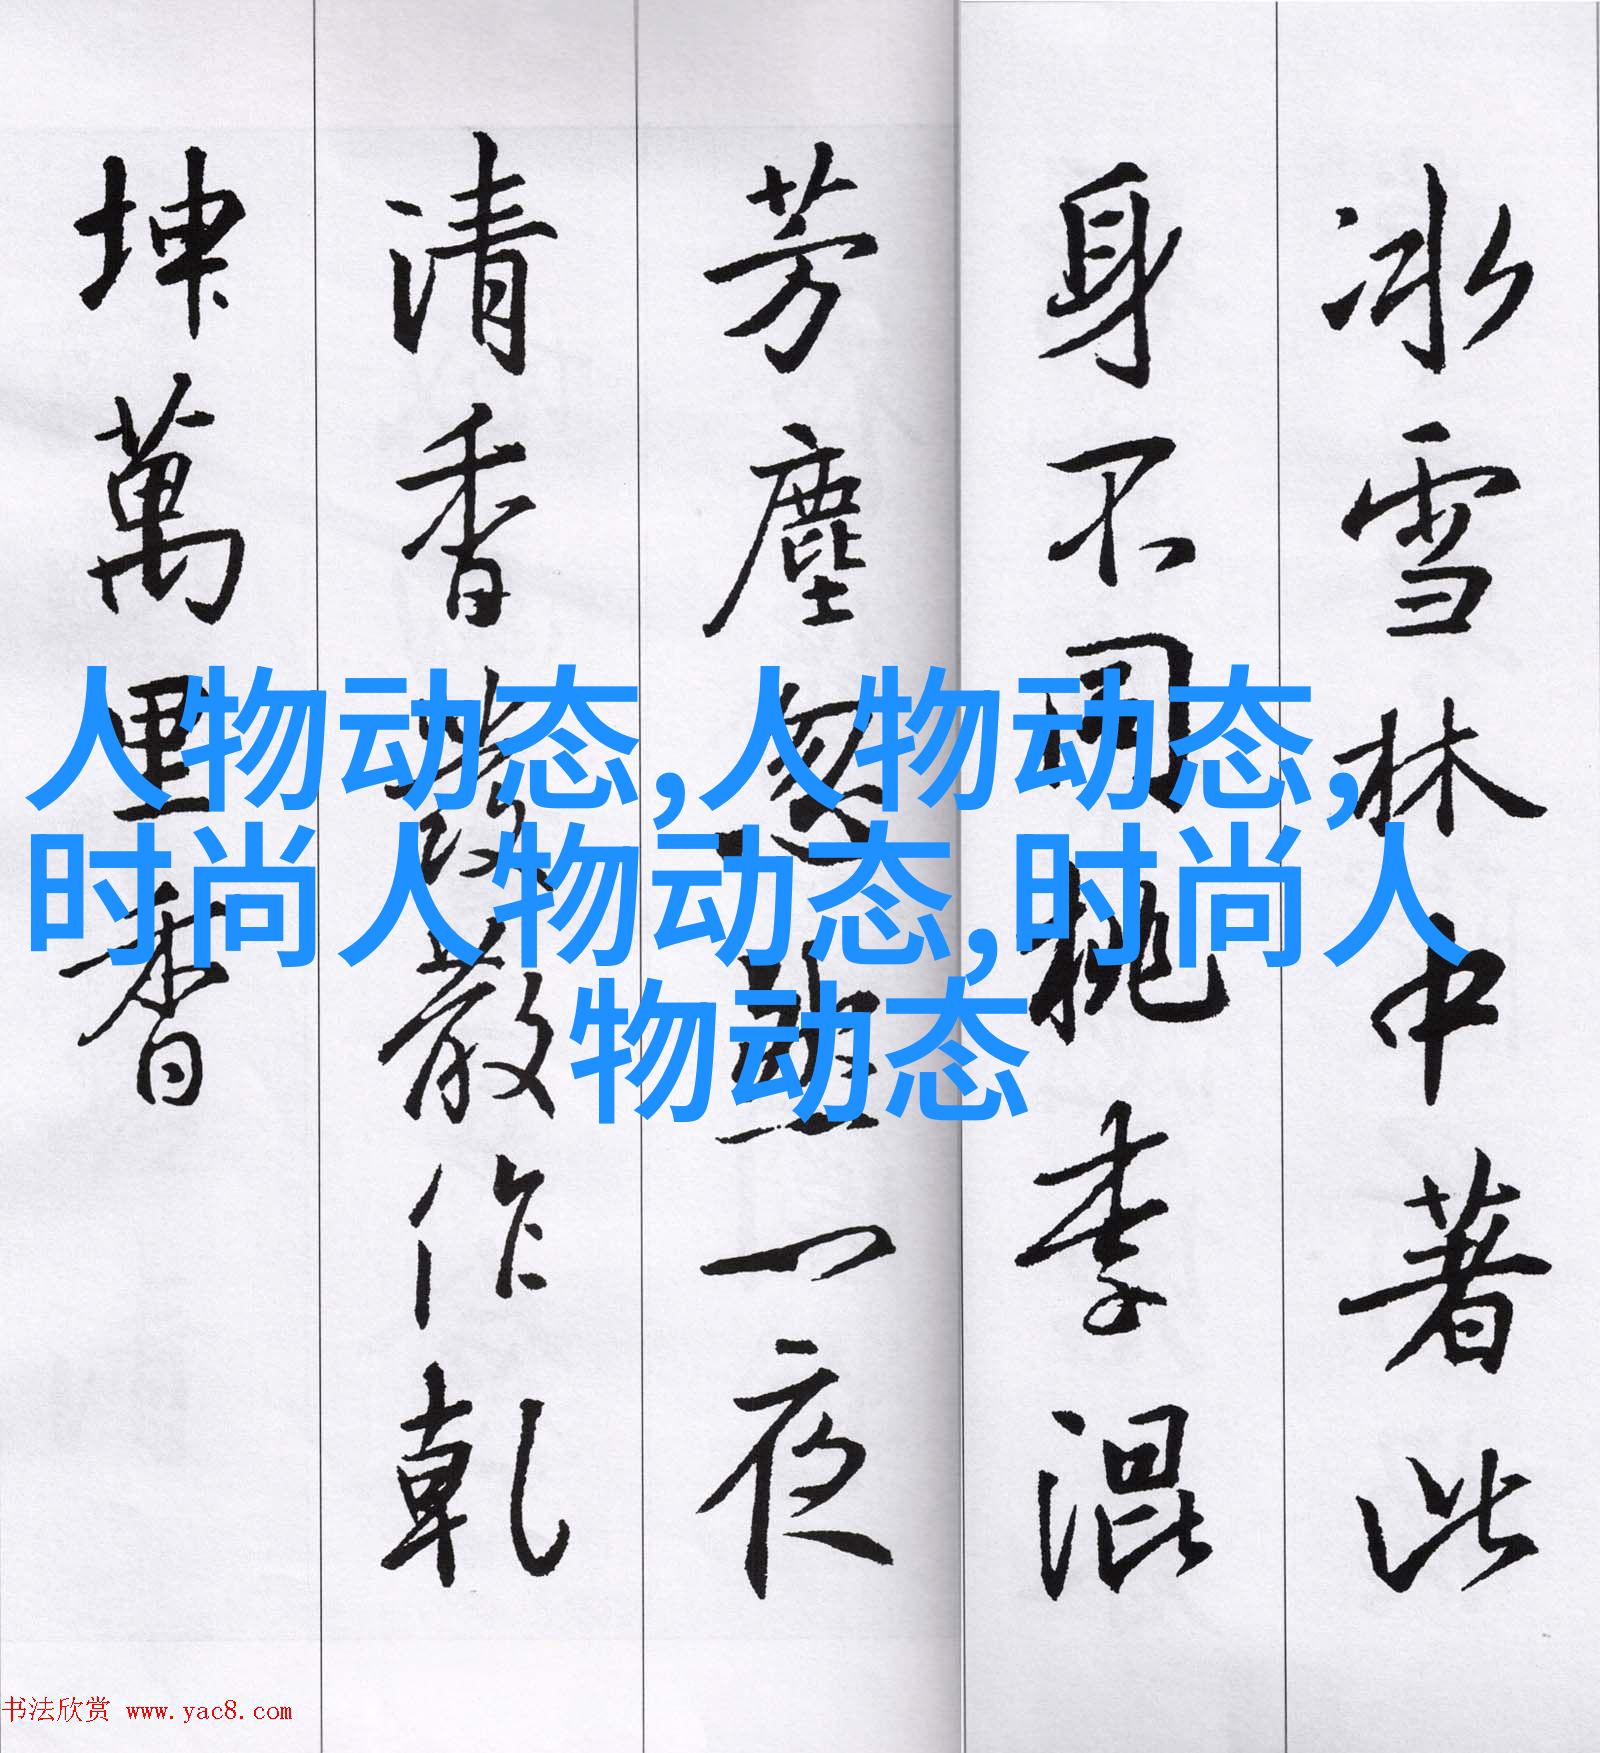 冰雪林中著此
身不同桃李混
芳塵忽然一夜
清香發散作乾
坤萬里香
人物动态,人物动态,
时尚人物动态,时尚人
物动态
书法欣赏 www.yac8.com